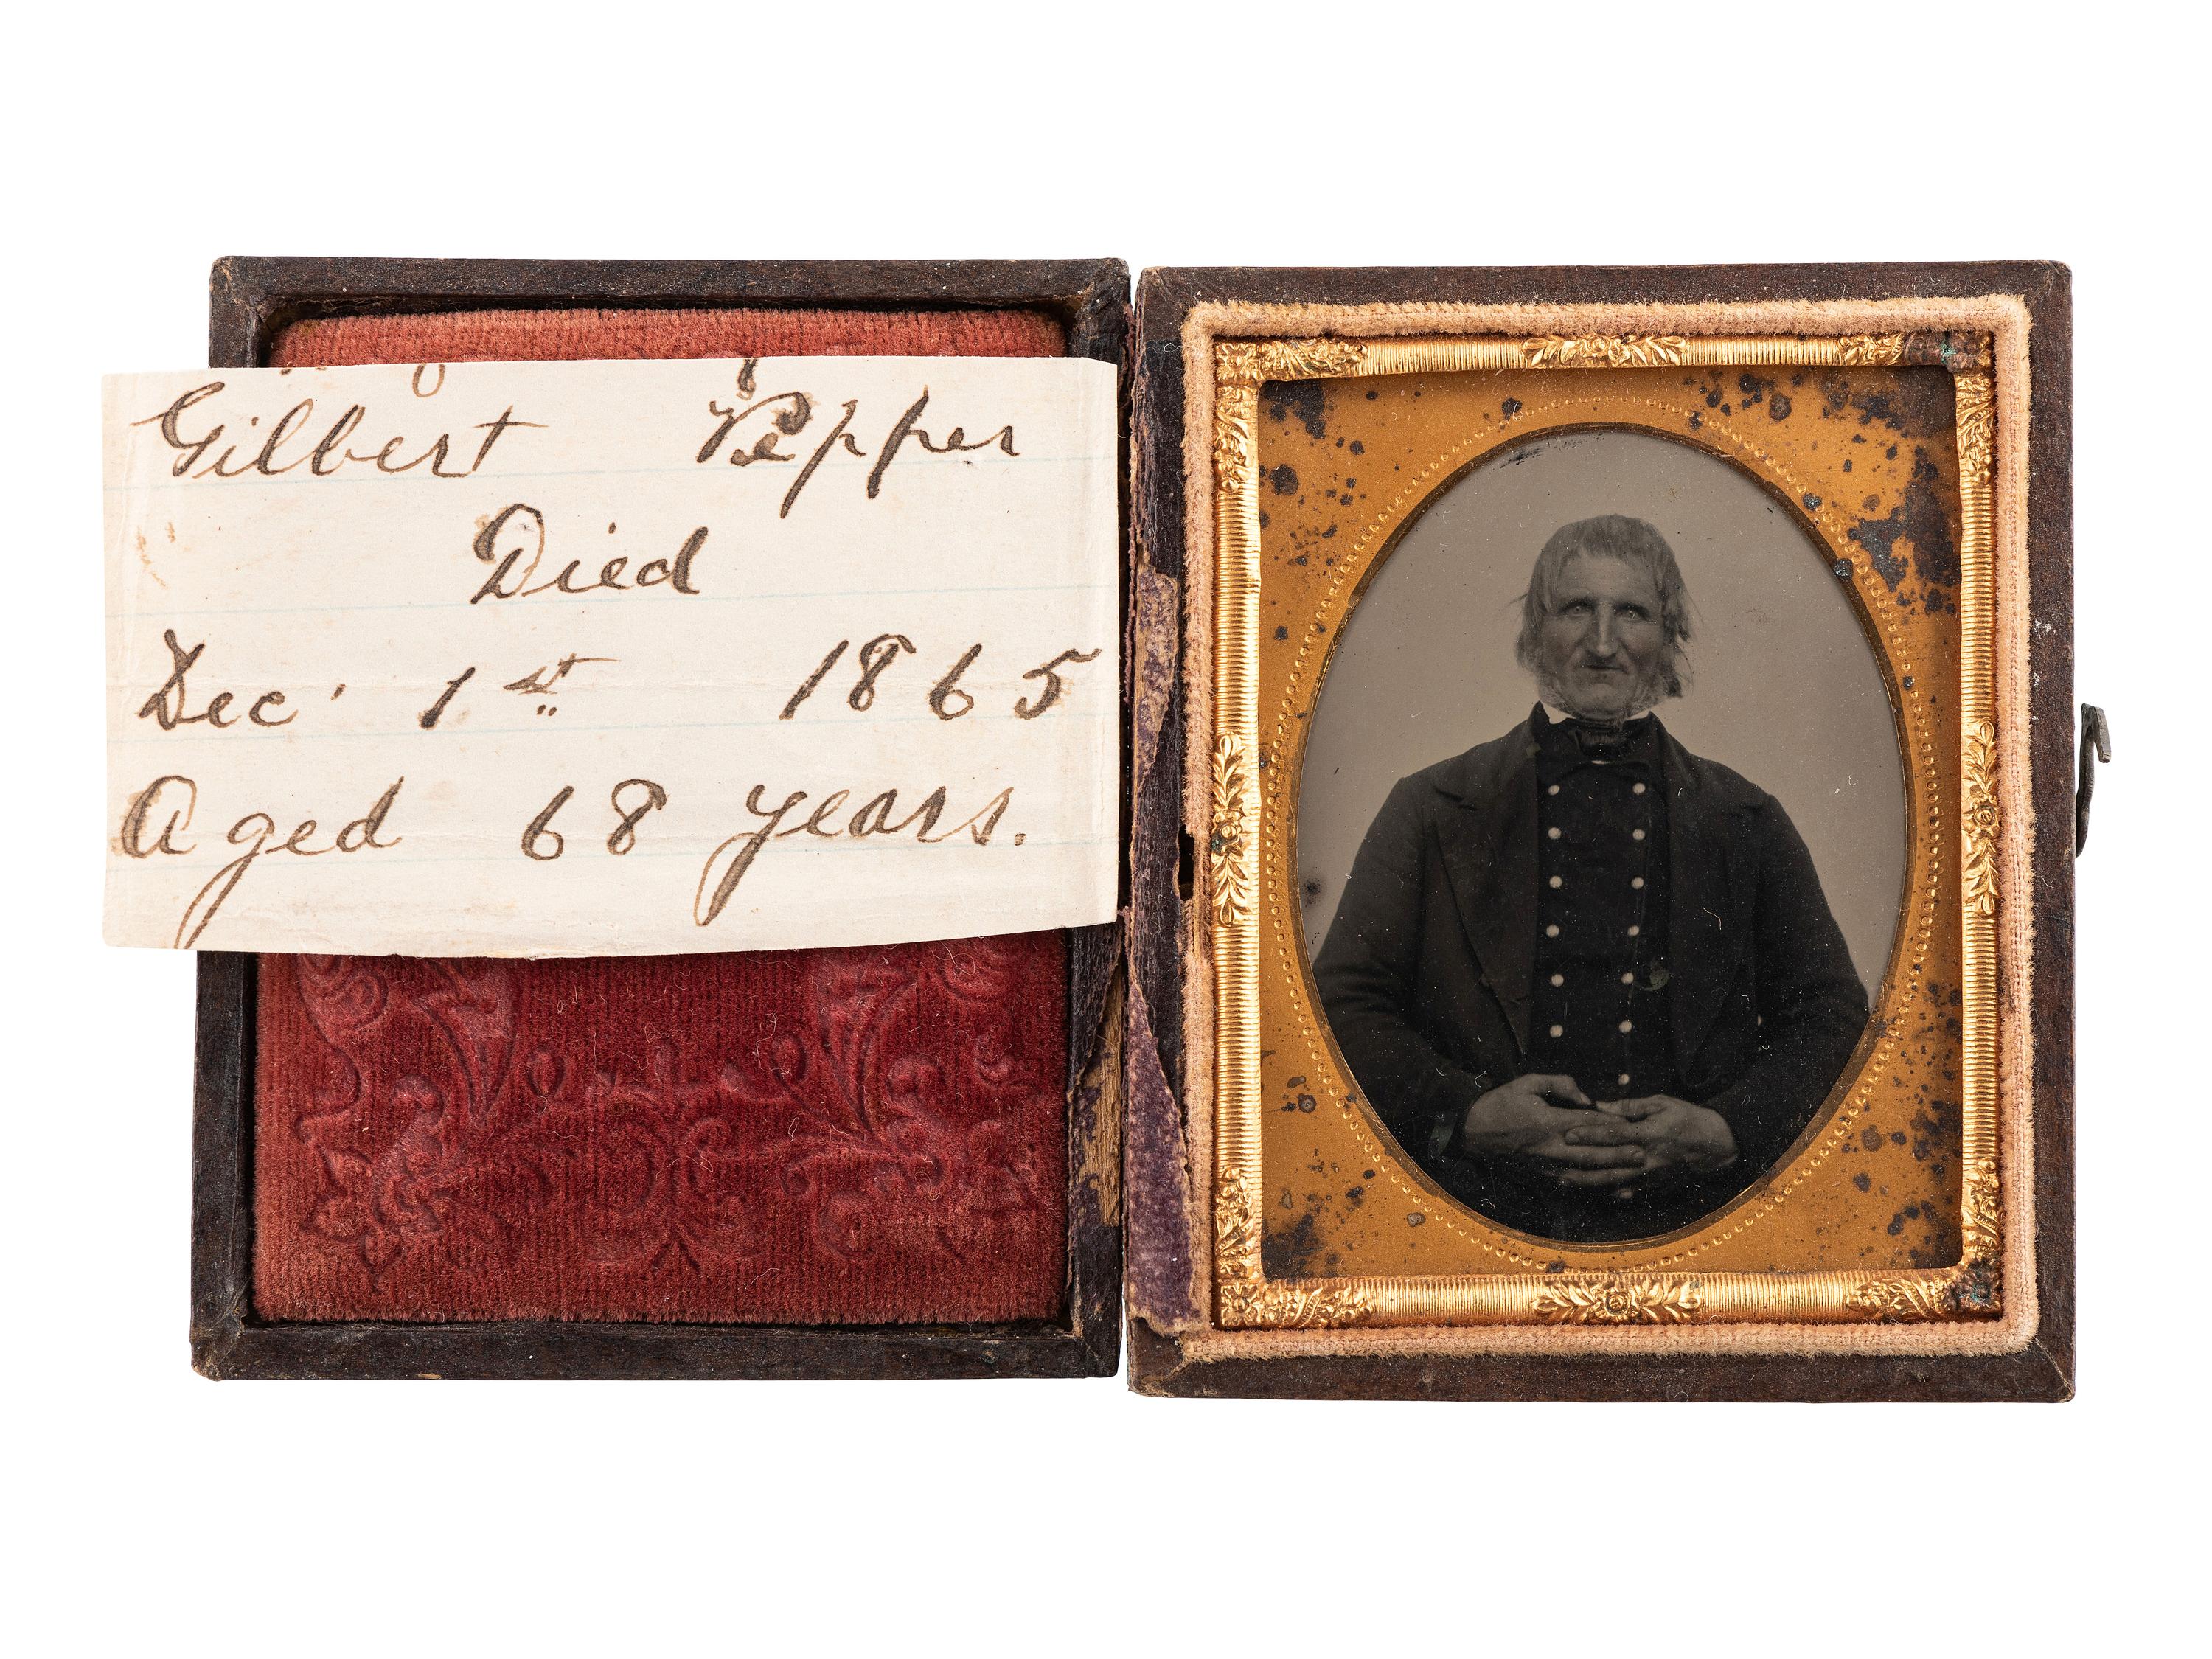 Gilbert Pepper
Died
Dec. 1st 1865
Aged 68 years.